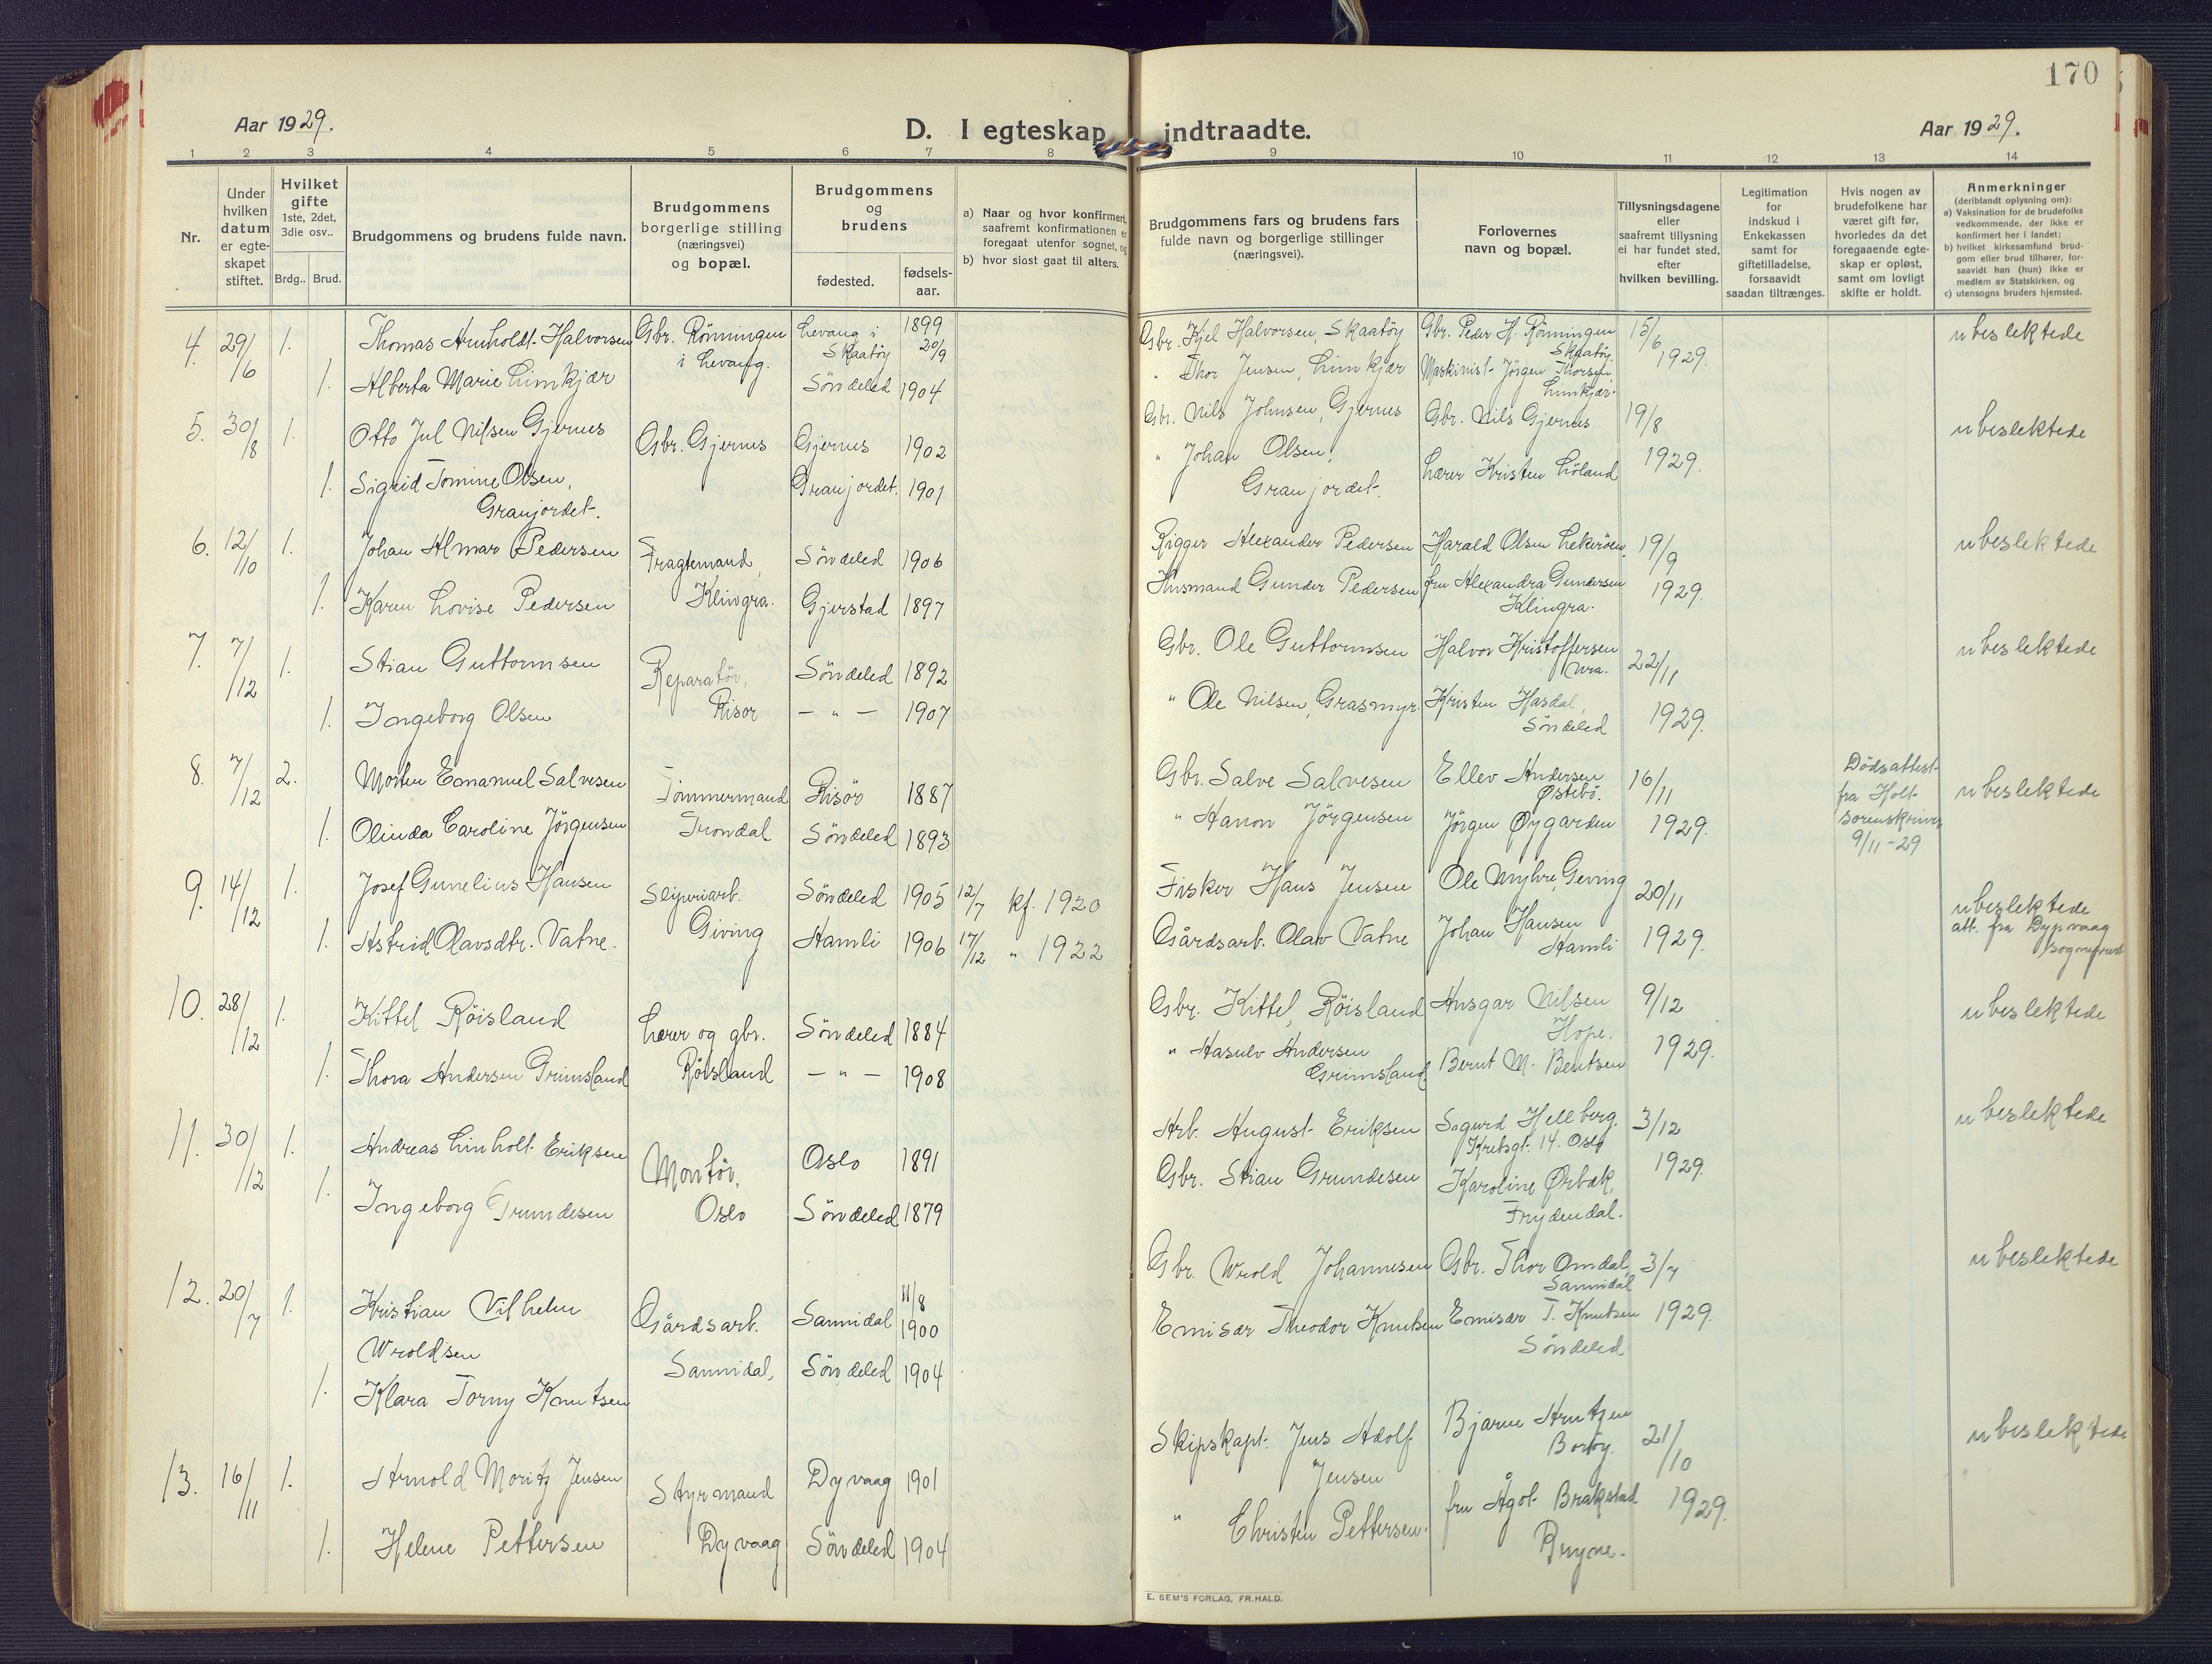 170
Aar 1929.
D. I egteskap indtraadte.
Aar 1929.
1 2 3 4 5 6 7 8 9 10 11 12 13 14
Nr.
Under hvilken datum er egte-skapet stiftet.
Hvilket gifte 1ste, 2det, 3die osv..
Brdg.. Brud.
Brudgommens og brudens fulde navn.
Brudgommens borgerlige stilling (næringsvei) og bopæl.
Brudgommens og brudens
fødested. fødsels-aar.
a) Naar og hvor konfirmert, saafremt konfirmationen er foregaat utenfor sognet, og
b) hvor sidst gaat til alters.
Brudgommens fars og brudens fars fulde navn og borgerlige stillinger (næringsvei).
Forlovernes navn og bopæl.
Tillysningsdagene eller saafremt tillysning ei har fundet sted, efter hvilken bevilling.
Legitimation for indskud i Enkekassen samt for giftetilladelse, forsaavidt saadan tiltrænges.
Hvis nogen av brudefolkene har været gift før, hvorledes da det foregaaende egte-skap er opløst, samt om lovligt skifte er holdt.
Anmerkninger (deriblandt oplysning om):
a) Vaksination for de brudefolks vedkommende, der ikke er konfirmert her i landet;
b) hvilket kirkesamfund brud-gom eller brud tilhører, for-saavidt han (hun) ikke er medlem av Statskirken, og
c) utensogns bruders hjemsted.
4. 29/6 1. Thomas Arnholdt Halvorsen Gbr. Rönningen i Levang. Levang i Skaatöy 1899 20/9 Gbr. Kjel Halvorsen, Skaatöy Gbr. Peder H. Rönningen Skaatöy. 15/6 1929. ubeslektede
1. Alberta Marie Limkjær Söndeled 1904 " Thor Jensen, Limkjær Maskinist Jörgen Thorsen, Limkjær.
5. 30/8 1. Otto Jul Nilsen Gjernes Gbr. Gjernes Gjernes 1902 Gbr. Nils Johnsen, Gjernes Gbr. Nils Gjernes 19/8 1929. ubeslektede
1. Sigrid Tomine Olsen, Granjordet. Granjordet. 1901 " Johan Olsen, Granjordet. Lærer Kristen Löland
6. 12/10 1. Johan Almar Pedersen Fragtemand, Klingra. Söndeled 1906 Rigger Alexander Pedersen Harald Olsen Lekeröen. 19/9 1929. ubeslektede
1. Karen Lovise Pedersen Gjerstad 1897 Husmand Gunder Pedersen fru Alexandra Gundersen Klingra.
7. 7/12 1. Stian Guttormsen Reparatör, Risör Söndeled 1892 Gbr. Ole Guttormsen Halvor Kristoffersen Vraa. 22/11 1929. ubeslektede
1. Ingeborg Olsen — " — 1907 " Ole Nilsen, Grasmyr. Kristen Hasdal, Söndeled
8. 7/12 2. Morten Emanuel Salvesen Tömmermand Trondal Risör 1887 Gbr. Salve Salvesen Ellev Andersen Østebö. 16/11 1929. Dödsattest fra Holt sorenskriver 9/11-29 ubeslektede
1. Olinda Caroline Jörgensen Söndeled 1893 " Hanon Jörgensen Jörgen Øygarden
9. 14/12 1. Josef Gunelius Hansen Sliperiarb. Giving Söndeled 1905 12/7 kf. 1920 Fisker Hans Jensen Ole Myhre, Geving 20/11 1929. ubeslektede att. fra Dypvaag sogneprest
1. Astrid Olavsdtr. Vatne. Hamli 1906 17/12 " 1922 Gårdsarb. Olav Vatne Johan Hansen Hamli
10. 28/12 1. Kittel Röisland Lærer og gbr. Röisland Söndeled 1884 Gbr. Kittel Röisland Ansgar Nilsen Hope. 9/12 1929. ubeslektede
1. Thora Andersen Grimsland — " — 1908 " Aasulv Andersen Grimsland Bernt M. Bentsen
11. 30/12 1. Andreas Linholt Eriksen Montör, Oslo Oslo 1891 Arb. August Eriksen Sigurd Hellberg. Kretsgt. 14. Oslo 3/12 1929. ubeslektede
1. Ingeborg Grundesen Söndeled 1879 Gbr. Stian Grundesen Karoline Ørbæk, Frydendal.
12. 20/7 1. Kristian Vilhelm Wroldsen Gårdsarb. Sannidal, Sannidal 11/8 1900 Gbr. Wrold Johannesen Gbr. Thor Omdal, Sannidal 3/7 1929. ubeslektede
1. Klara Torny Knutsen Söndeled 1904 Emisær Theodor Knutsen Emisær T. Knutsen Söndeled.
13. 16/11 1. Arnold Moritz Jensen Styrmand Dyvaag Dyvaag 1901 Skipskapt. Jens Adolf Jensen Bjarne Arntzen Boröy. 21/10 1929. ubeslektede
1. Helene Pettersen Söndeled 1904 " Christen Pettersen. fru Ågot Brakstad Bryne.
E. SEM'S FORLAG, FR.HALD.